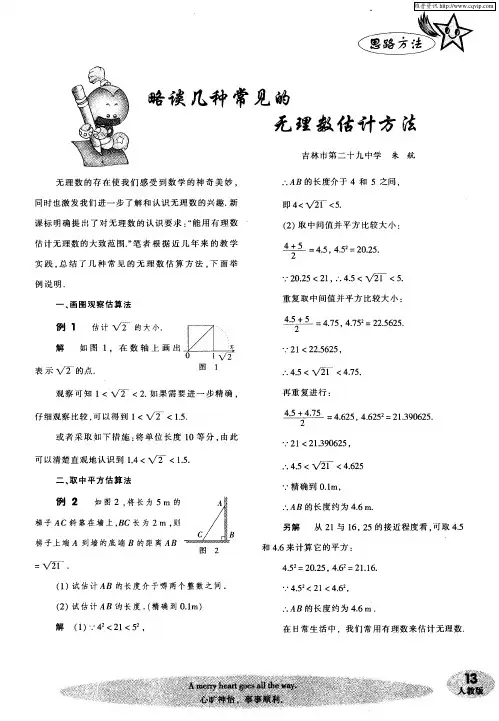 维普资讯 http://www.cqvip.com
思路方法
略谈几种常见的
无理数估计方法
吉林市第二十九中学 朱 航
无理数的存在使我们感受到数学的神奇美妙,
同时也激发我们进一步了解和认识无理数的兴趣.新
课标明确提出了对无理数的认识要求:“能用有理数
估计无理数的大致范围.”笔者根据近几年来的教学
实践,总结了几种常见的无理数估算方法,下面举
例说明.
一、画图观察估算法
例 1 估计 √2 的大小.
解 如图 1,在数轴上画出
表示 √2 的点.
0 1 √2 x
图 1
观察可知 1< √2 <2.如果需要进一步精确,
仔细观察比较,可以得到 1< √2 <1.5.
或者采取如下措施:将单位长度 10 等分,由此
可以清楚直观地认识到 1.4< √2 <1.5.
二、取中平方估算法
例 2 如图 2,将长为 5 m 的
梯子 AC 斜靠在墙上,BC 长为 2 m,则
梯子上端 A 到墙的底端 B 的距离 AB
= √21 .
A
C B
图 2
(1) 试估计 AB 的长度介于哪两个整数之间.
(2) 试估计 AB 的长度.(精确到 0.1m)
解 (1) ∵ 4²<21<5²,
∴ AB 的长度介于 4 和 5 之间,
即 4< √21 <5.
(2) 取中间值并平方比较大小:
(4+5)/2 =4.5, 4.5²=20.25.
∵ 20.25<21, ∴ 4.5< √21 <5.
重复取中间值并平方比较大小:
(4.5+5)/2 =4.75, 4.75²=22.5625.
∵ 21<22.5625,
∴ 4.5< √21 <4.75.
再重复进行:
(4.5+4.75)/2 =4.625, 4.625²=21.390625.
∵ 21<21.390625,
∴ 4.5< √21 <4.625
∵ 精确到 0.1m,
∴ AB 的长度约为 4.6 m.
另解 从 21 与 16,25 的接近程度看,可取 4.5
和 4.6 来计算它的平方:
4.5²=20.25, 4.6²=21.16.
∵ 4.5²<21<4.6²,
∴ AB 的长度约为 4.6 m.
在日常生活中, 我们常用有理数来估计无理数.
A merry heart goes all the way.
心旷神怡,事事顺利.
13
人教版